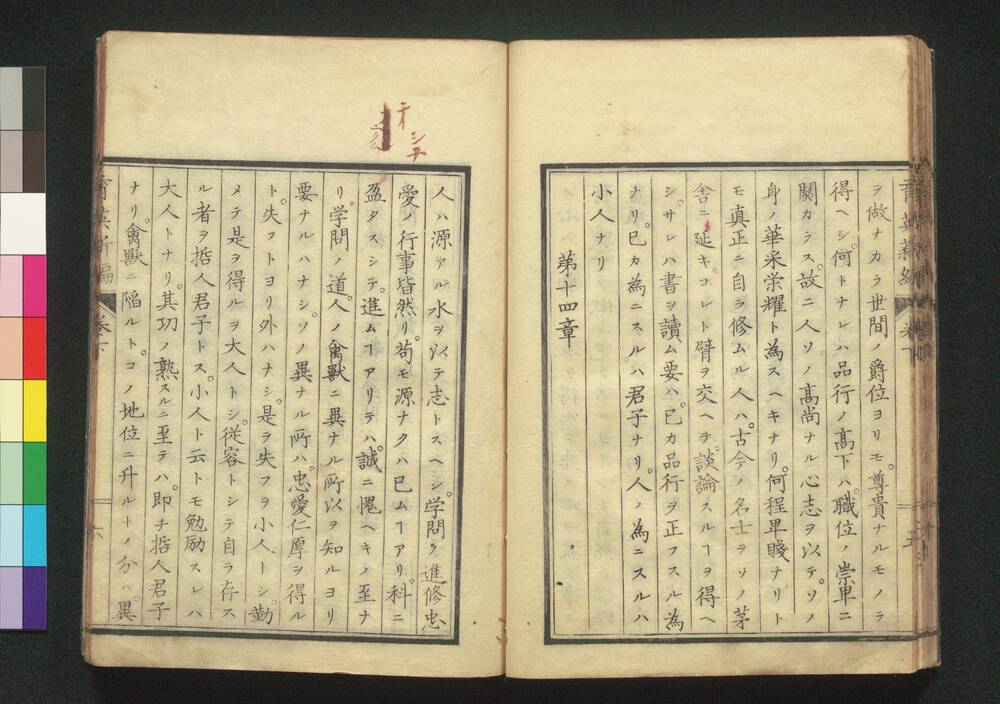 ヲ做ナカラ世間ノ爵位ヨリモ尊貴ナルモノラ
得ヘシ。何トナレハ品行ノ高下ハ。職位ノ崇卑ニ
関カラス。故ニ人ソノ高尚ナル心志ヲ以テ。ソノ
身ノ華采栄耀ト為スヘキナリ。何程卑賤ナリト
モ真正ニ自ラ修ムル人ハ。古今ノ名士ヲソノ茅
舎ニ延キ。コレト臂ヲ交ヘテ。談論スルヿヲ得ヘ
シ。サレハ書ヲ讀ム要ハ。已カ品行ヲ正フスル為
ナリ。已カ為ニスルハ君子ナリ。人ノ為ニスルハ
小人ナリ
第十四章
人ハ源アル水ヲ以テ志トスヘシ。学問ヲ進修忠
愛ノ行事皆然リ。苟モ源ナクハ已ムヿアリ。科ニ
盈タスシテ。進ムヿアリテハ。誠ニ愧ヘキノ至ナ
リ。学問ノ道。人ノ禽獣ニ異ナル所以ヲ知ルヨリ
要ナルハナシ。ソノ異ナル所ハ。忠愛仁厚ヲ得ル
ト。失フトヨリ外ハナシ。是ヲ失フヲ小人トシ。勤
メテ是ヲ得ルヲ大人トシ。従容トシテ自ラ存ス
ル者ヲ哲人君子トス。小人ト云トモ勉励スレハ
大人トナリ。其功ノ熟スルニ至テハ。即チ哲人君子
ナリ。禽獣ニ陥ルト。コノ地位ニ升ルトノ分ハ。異
育英新編 巻下 六